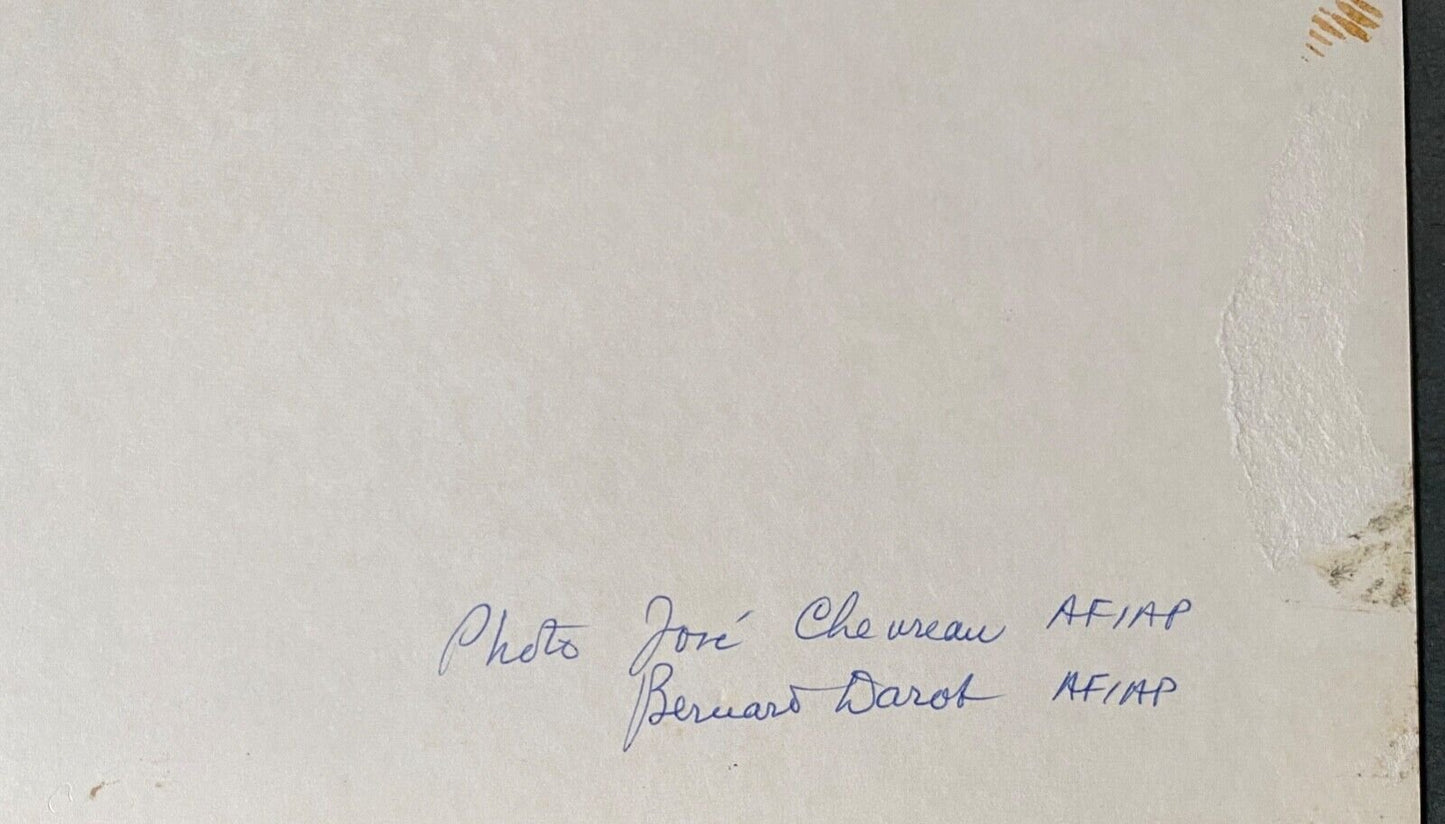 Photo José Chevreau AFIAP
Bernard Darot AFIAP